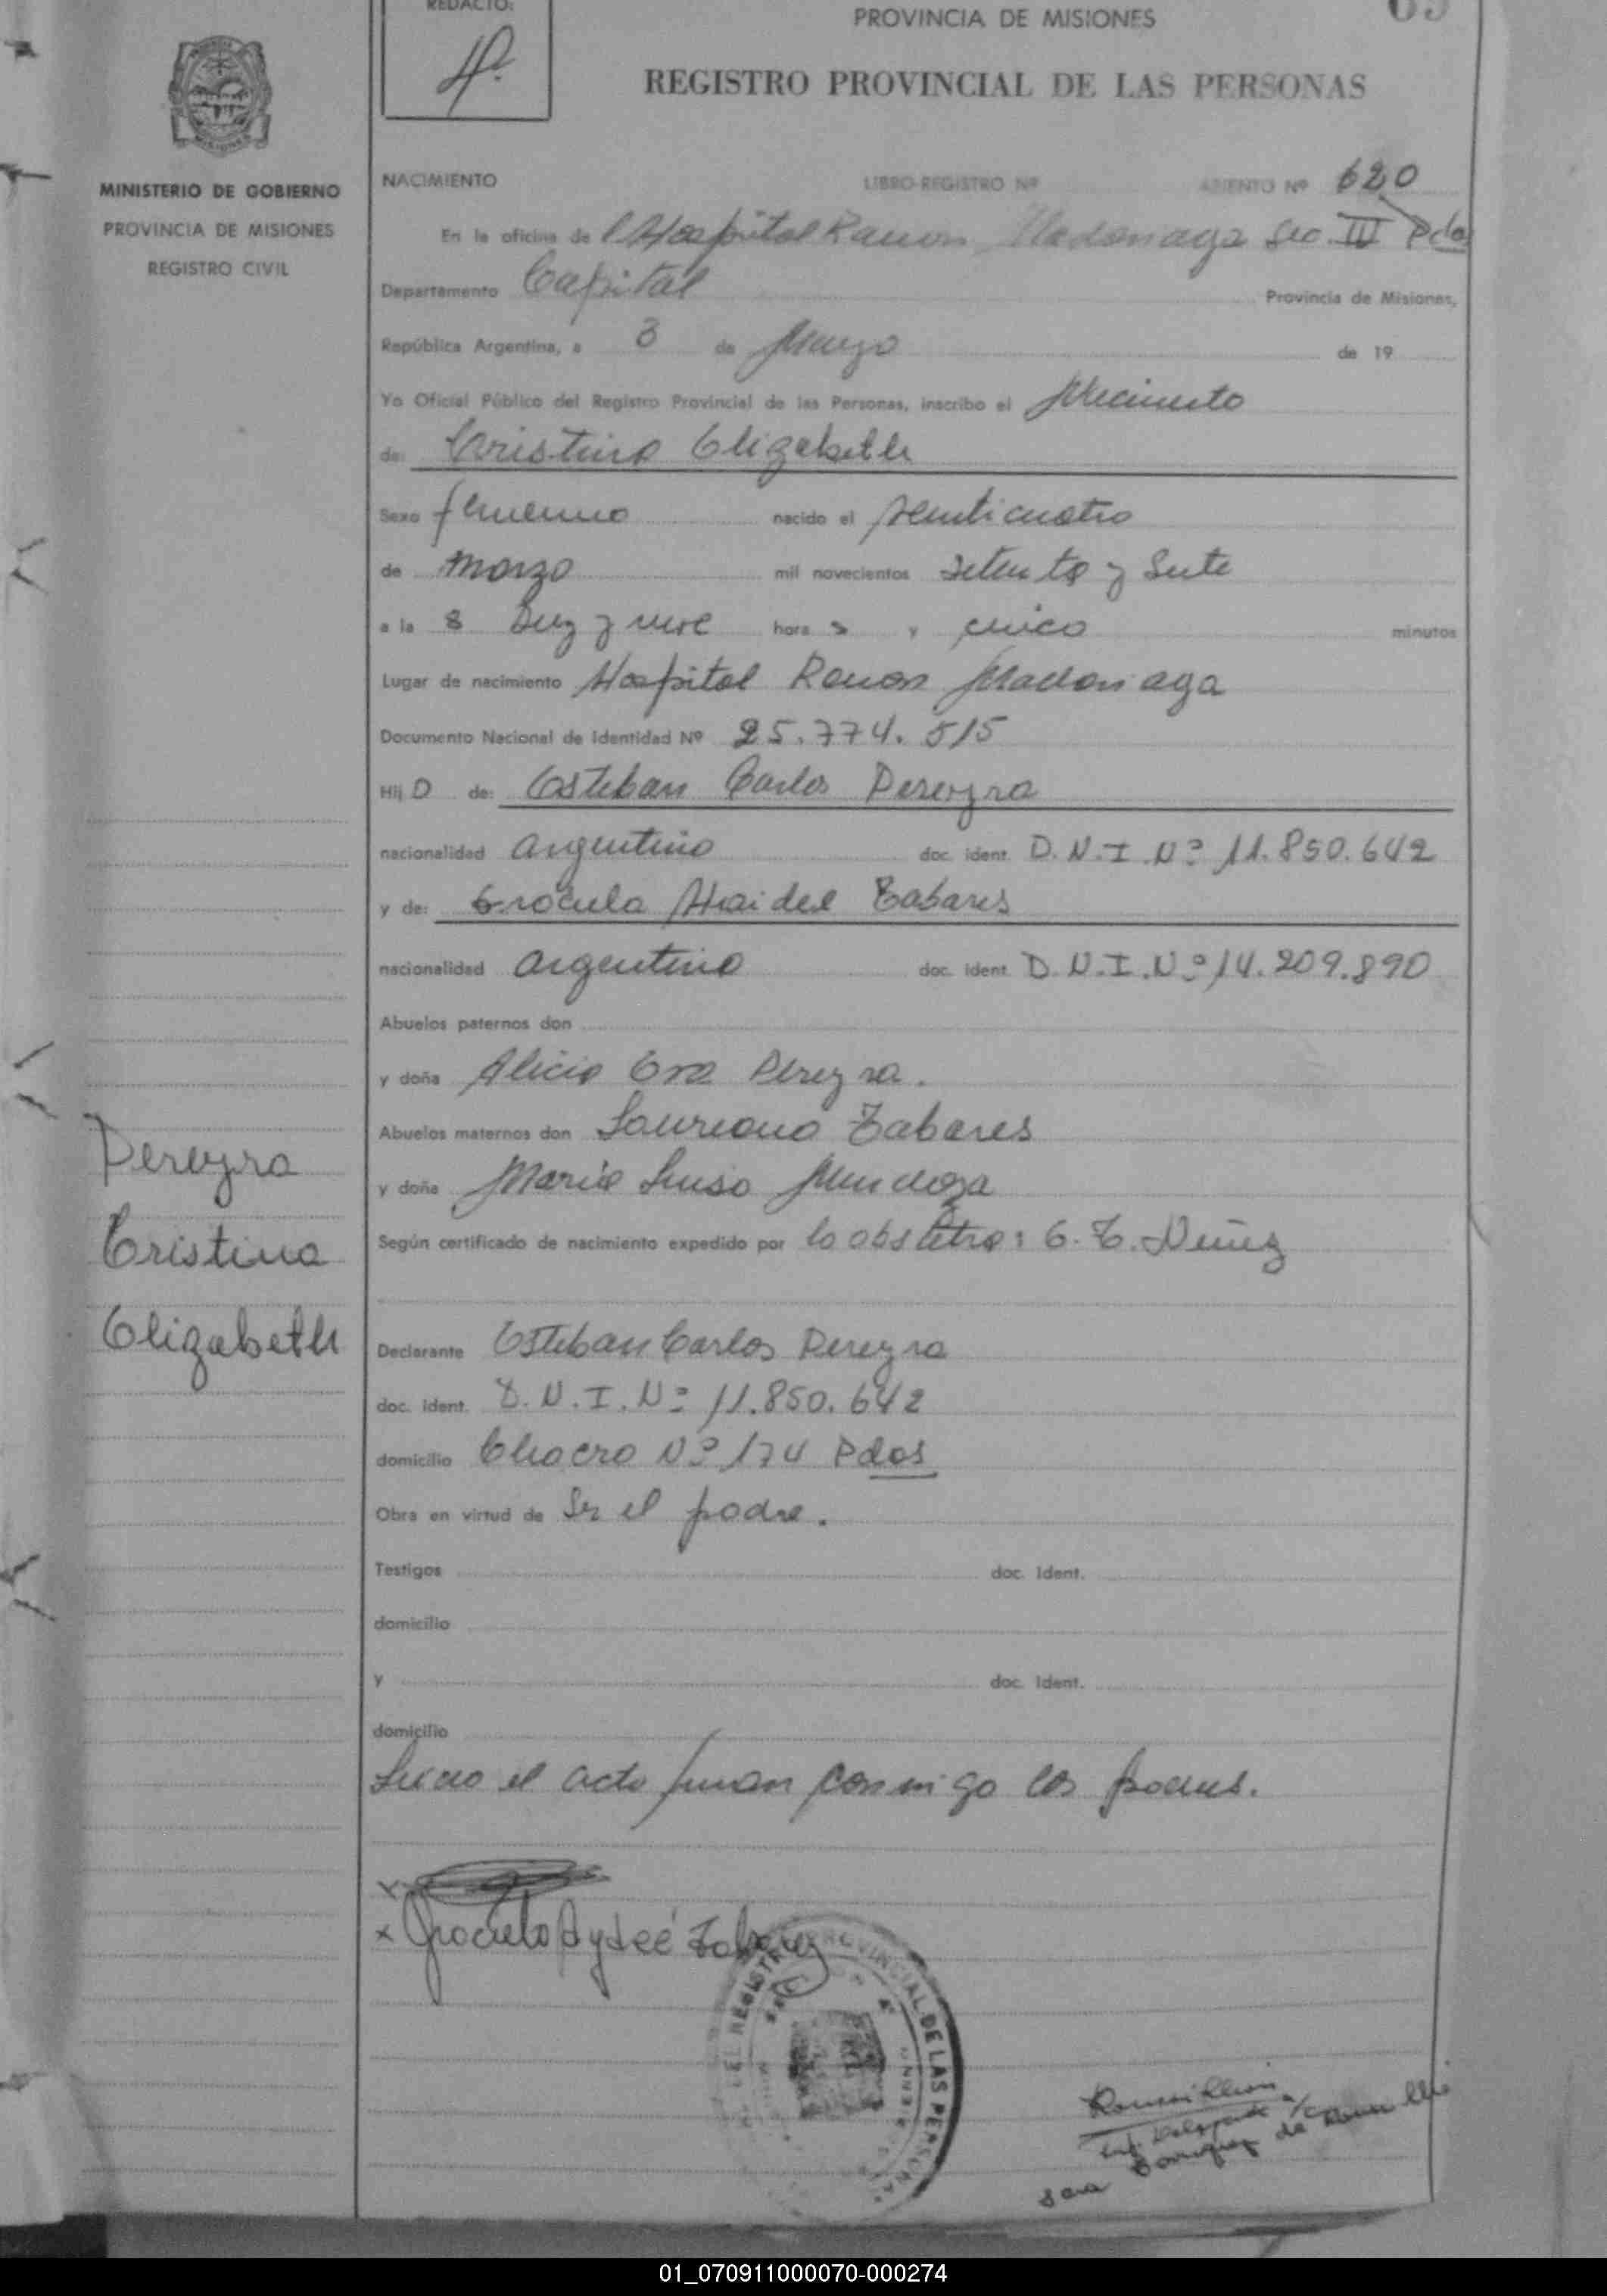 REDACTO:
PROVINCIA DE MISIONES
REGISTRO PROVINCIAL DE LAS PERSONAS
MINISTERIO DE GOBIERNO
PROVINCIA DE MISIONES
REGISTRO CIVIL
NACIMIENTO LIBRO-REGISTRO Nº ASIENTO Nº 620
En la oficina de l Hospital Ramon Madariaga Sec. III Pdas
Departamento Capital Provincia de Misiones,
República Argentina, a 3 de Marzo de 19
Yo Oficial Público del Registro Provincial de las Personas, inscribo el Nacimiento
de: Cristina Elizabeth
Sexo femenino nacido el Veinticuatro
de Marzo mil novecientos setenta y siete
a la s Diez y nueve hora s y cinco minutos
Lugar de nacimiento Hospital Ramon Madariaga
Documento Nacional de Identidad Nº 25.774.515
Hij a de: Esteban Carlos Pereyra
nacionalidad argentino doc. ident. D.N.I. Nº 11.850.642
y de: Graciela Haidee Tabares
nacionalidad argentina doc. ident. D.N.I. Nº 14.209.890
Abuelos paternos don
y doña Alicia Eva Pereyra.
Abuelos maternos don Laureano Tabares
y doña Maria Luisa Mendoza
Según certificado de nacimiento expedido por la obstetra: E. T. Nuñez
Pereyra
Cristina
Elizabeth
Declarante Esteban Carlos Pereyra
doc. ident. D.N.I. Nº 11.850.642
domicilio Chacra Nº 174 Pdas
Obra en virtud de Ser el padre.
Testigos doc. ident.
domicilio
y doc. ident.
domicilio
Leido el acta firman conmigo los padres.
x
x Graciela Aydeé Tabarez
REGISTRO PROVINCIAL DE LAS PERSONAS
01_070911000070-000274